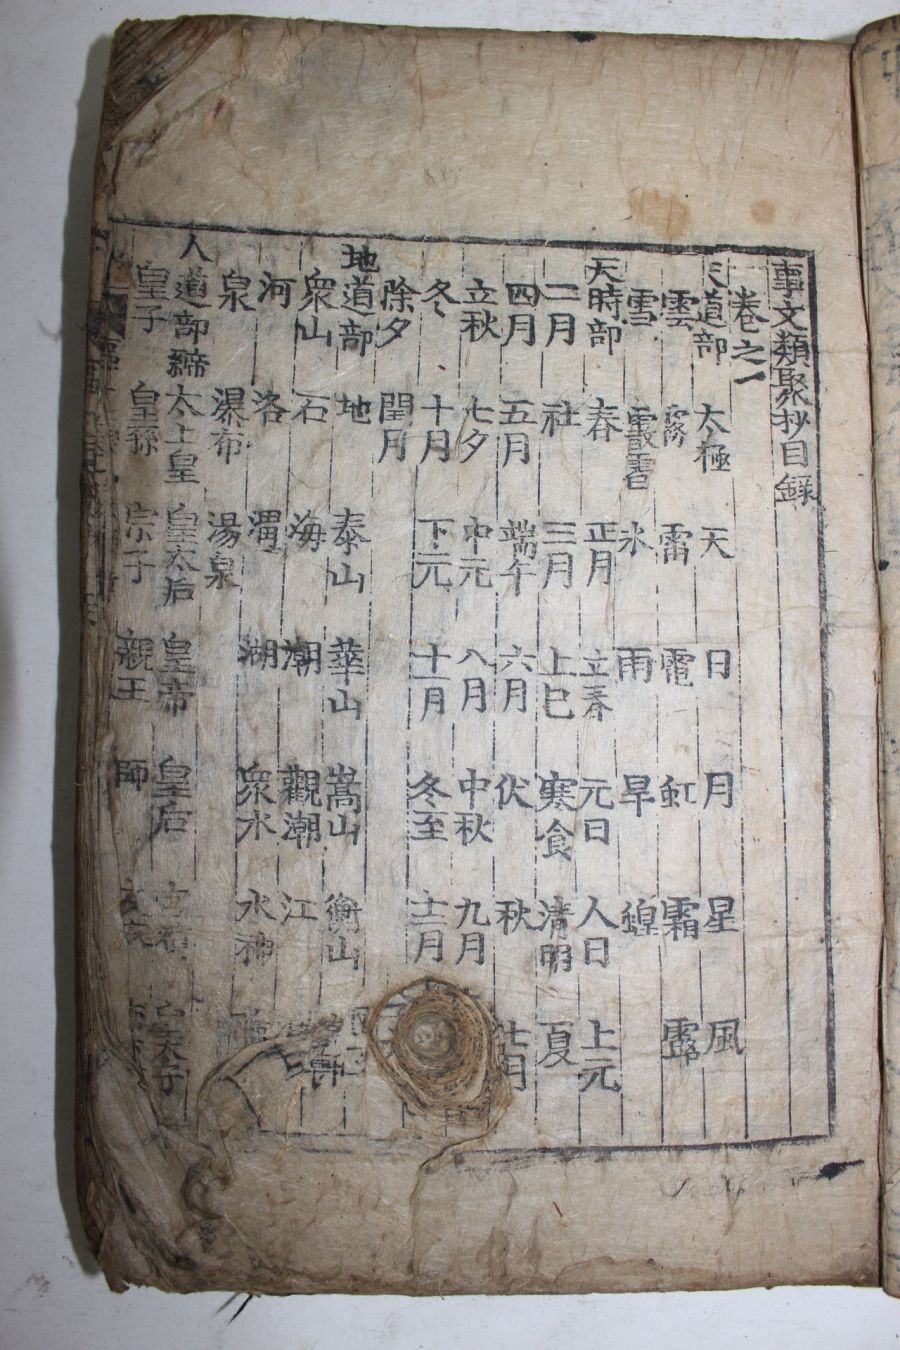 事文類聚抄目録
卷之一
天道部 太極 天 日 月 星 風
雲 霧 雷 電 虹 霜 露
雪 霰雹 氷 雨 旱 蝗
天時部 春 正月 立春 元日 人日 上元
二月 社 三月 上巳 寒食 清明 夏
四月 五月 端午 六月 伏 秋 七月
立秋 七夕 中元 八月 中秋 九月
冬 十月 下元 十一月 冬至 十二月
除夕 閏月
地道部 地 泰山 華山 嵩山 衡山
衆山 石 海 潮 觀潮 江
河 洛 渭 湖 衆水 水神
泉 瀑布 湯泉
人道部 太上皇 皇太后 皇帝 皇后 太子
皇子 皇孫 宗子 親王 師